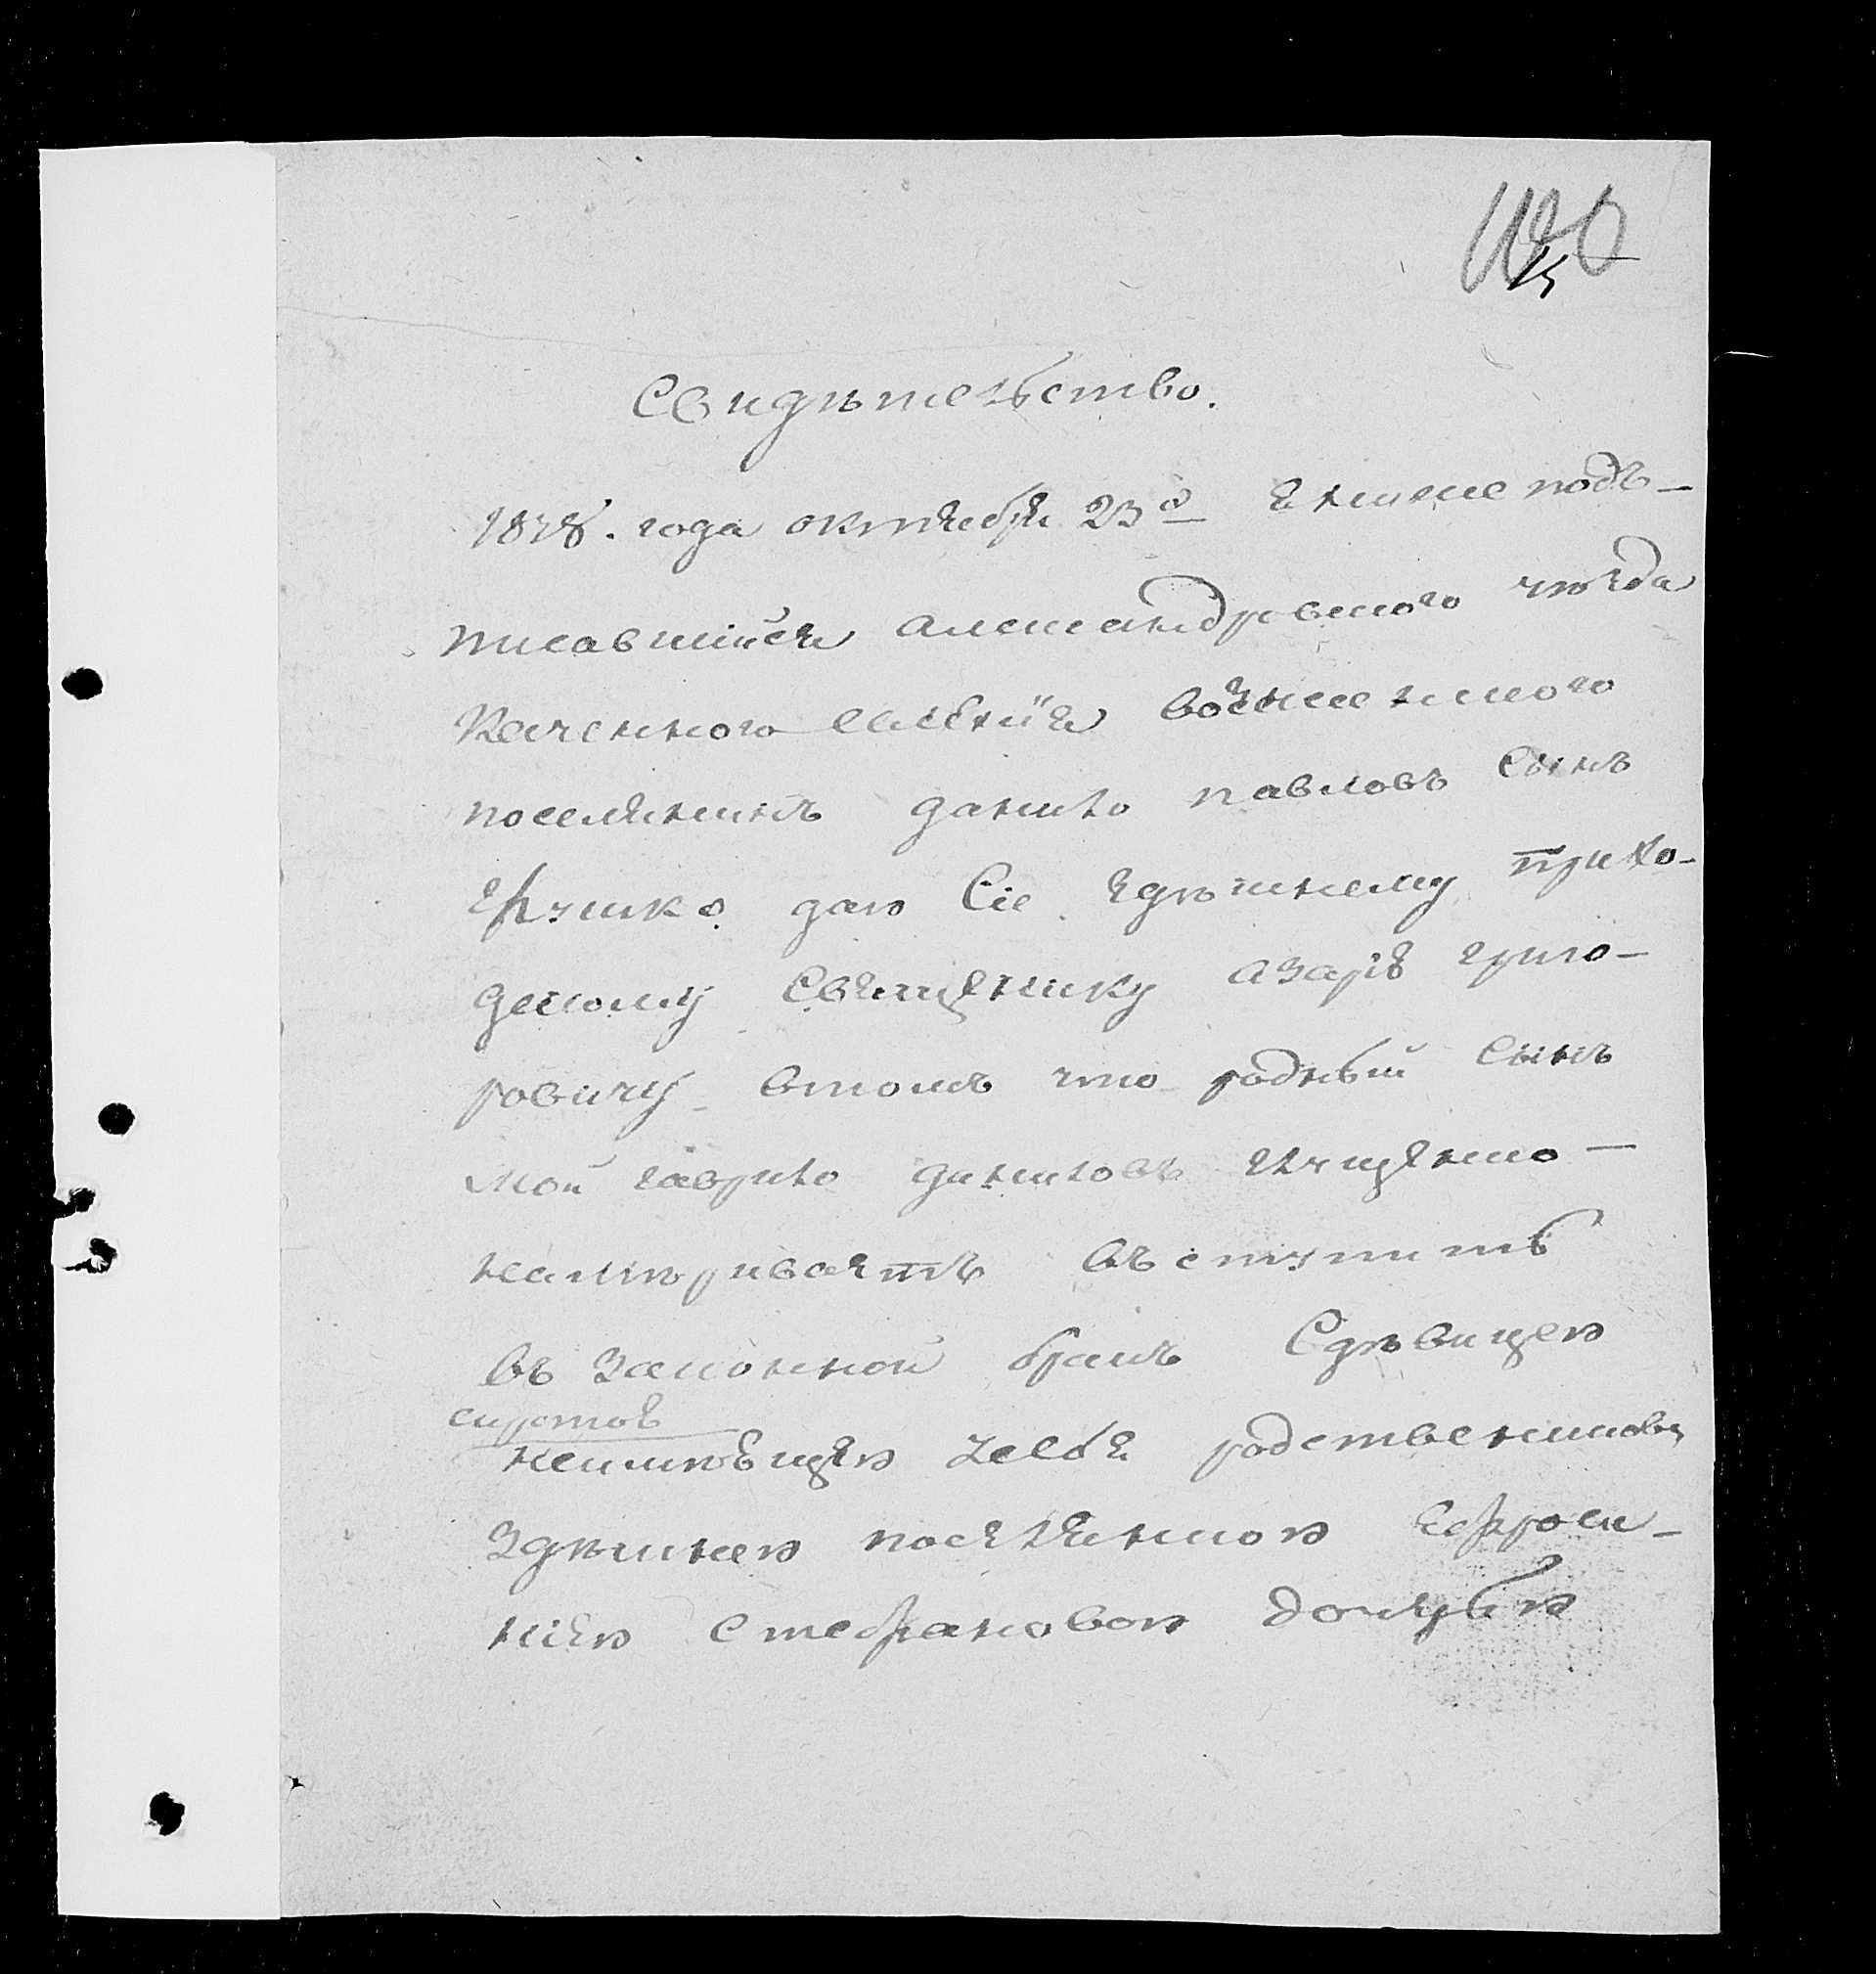 15
Свидѣтельство.
1818. года октября 23го Я ниже подъ-
писавшійся александровского уѣзда
Казенного селенія
поселянинъ данило павловъ Сынъ
даю Сіе здѣшнему прихо-
дскому Священику азарѣ григо-
ровичу втомъ что родный Сынъ
мой гаврило даниловъ
намѣриваетъ въступить
въ законной бракъ Сдѣвицею
сиротою
неимѣющею усебя родственниковъ
здѣшнею поселянкою Ефроси-
ніею Стефановою дочерью